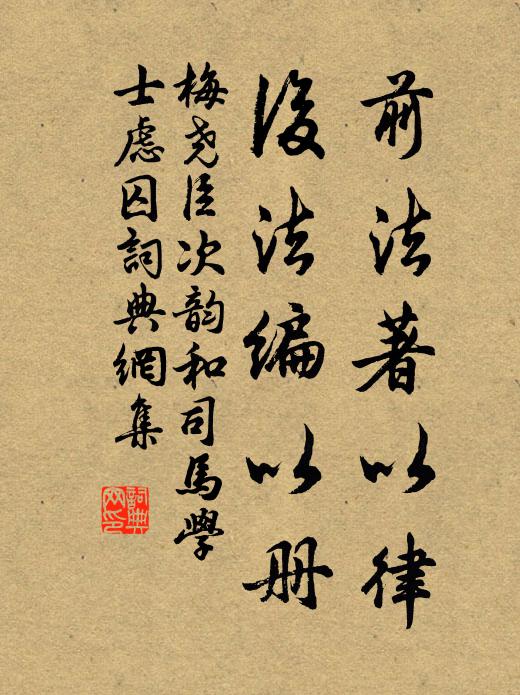 前法著以律
後法编以册
梅尧臣次韵和司馬學
士慮囚詞典網集
詞典
网印